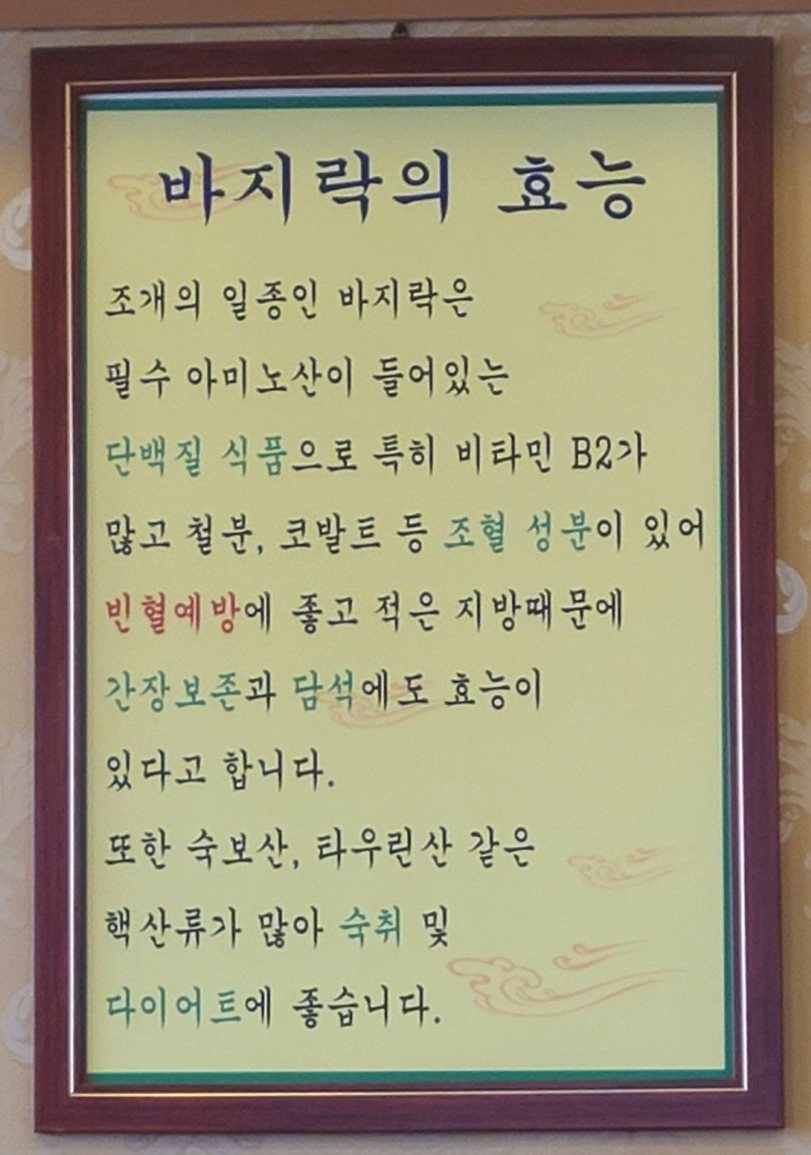 바지락의 효능
조개의 일종인 바지락은
필수 아미노산이 들어있는
단백질 식품으로 특히 비타민 B2가
많고 철분, 코발트 등 조혈 성분이 있어
빈혈예방에 좋고 적은 지방때문에
간장보존과 담석에도 효능이
있다고 합니다.
또한 숙보산, 타우린산 같은
핵산류가 많아 숙취 및
다이어트에 좋습니다.